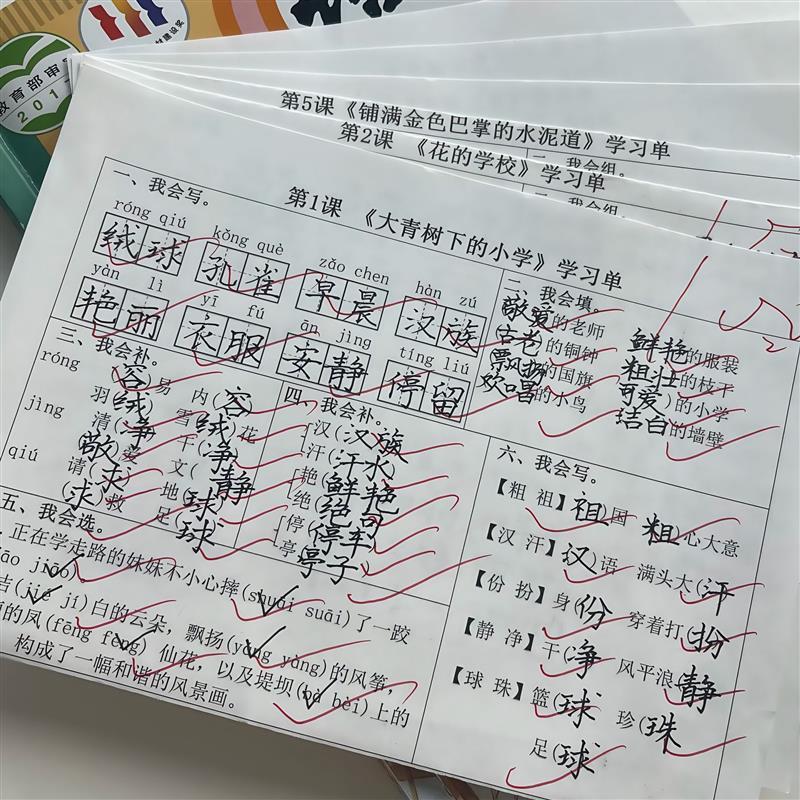 教育部审
第5课《铺满金色巴掌的水泥道》学习单
二、我会组。
第2课 《花的学校》学习单
我会组。
第1课 《大青树下的小学》学习单
一、我会写。
róng qiú kǒng què zǎo chen hàn zú
绒球 孔雀 早晨 汉族
yàn lì yī fú ān jìng tíng liú
艳丽 衣服 安静 停留
二、我会填。
敬爱的老师 鲜艳的服装
(古老)的铜钟 粗壮的枝干
飘扬的国旗 可爱)的小学
欢唱的小鸟 洁白的墙壁
三、我会补。
róng 容易 内(容
羽绒 雪(绒花
jìng 清(净 干(净
敬爱 文(静
qiú 请(求 地(球
(求)救 足(球
四、我会补。
汉(汉族
汗(汗水
艳(鲜艳
绝(绝句
停(停车
亭(亭子
五、我会选。
正在学走路的妹妹不小心摔(shuāi suāi)了一跤
(jié jí)白的云朵,飘扬(yáng yàng)的风筝,
的凤(fēng fèng)仙花,以及堤坝(bà bèi)上的
构成了一幅和谐的风景画。
六、我会写。
【粗 祖】祖国 粗心大意
【汉 汗】汉)语 满头大(汗
【份 扮】身(份 穿着打(扮
【静 净】干(净 风平浪(静
【球 珠】篮(球 珍(珠
足(球